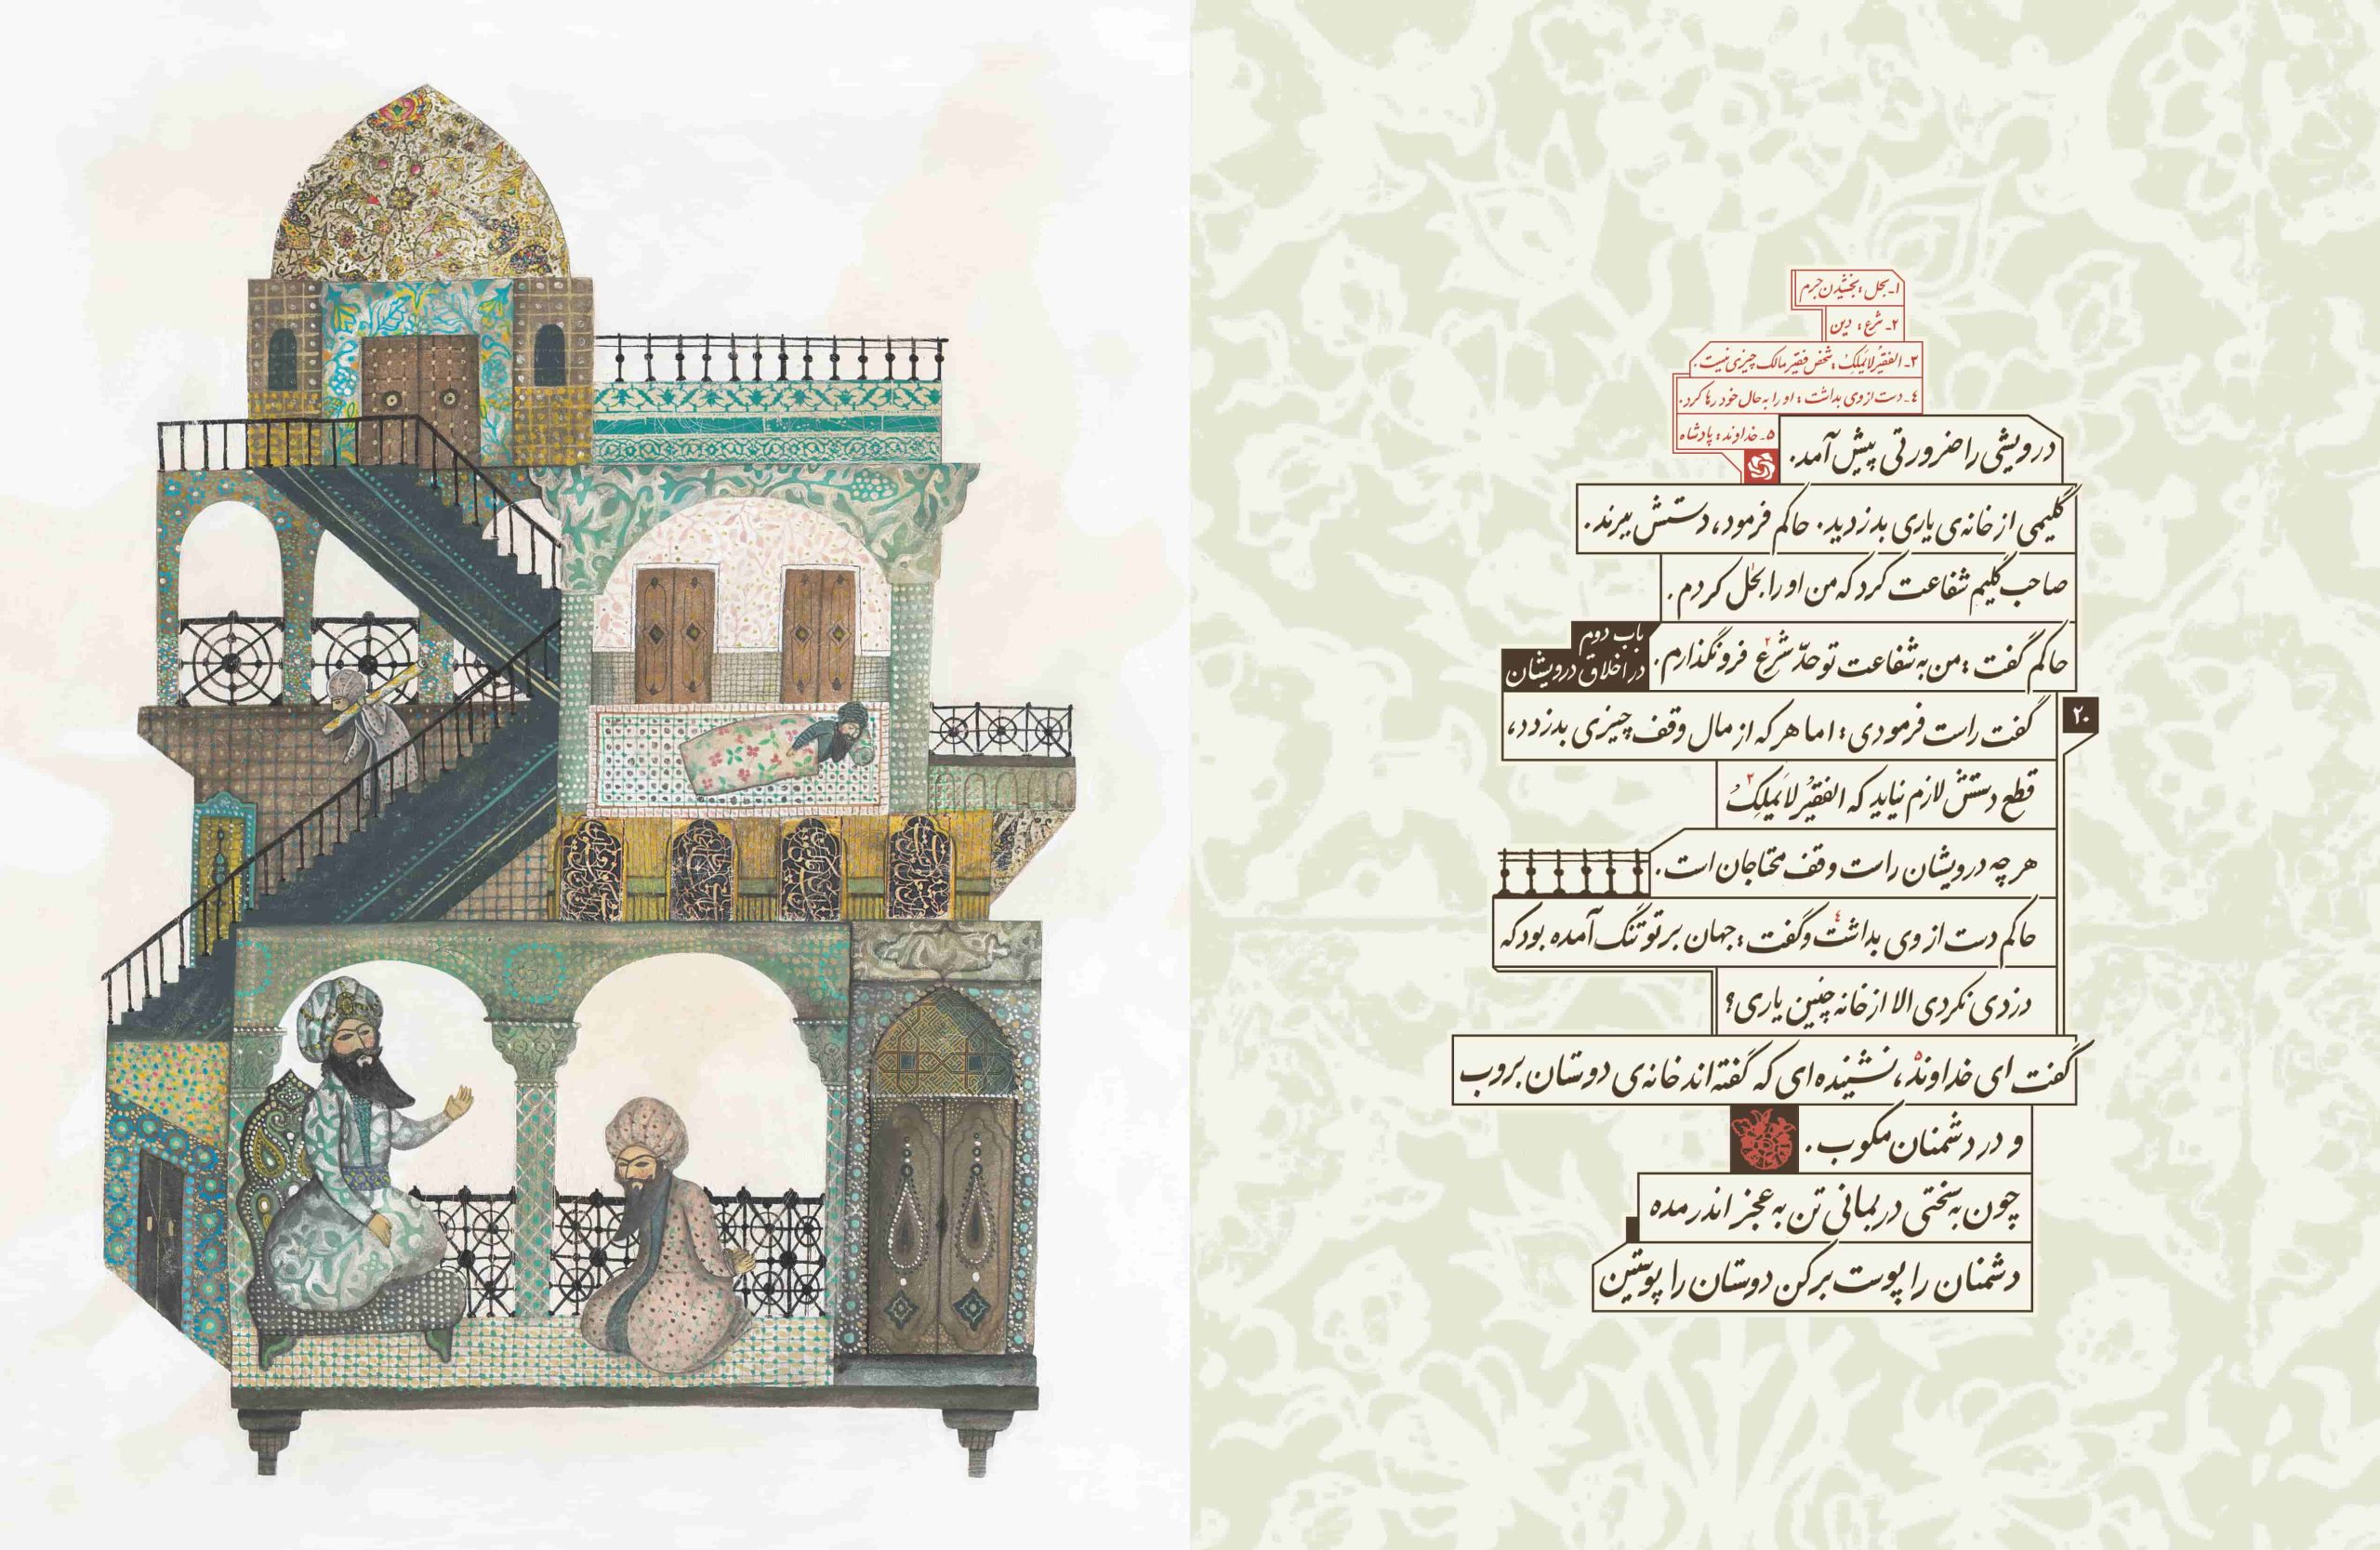 ۱- بحل: بخشیدن جرم
۲- شرع: دین
۳- الفقیرُ لایَملِکُ: شخص فقیر مالک چیزی نیست.
٤- دست از وی بداشت: او را به حال خود رها کرد.
۵- خداوند: پادشاه
درویشی را ضرورتی پیش آمد.
گلیمی از خانه‌ی یاری بدزدید. حاکم فرمود، دستش ببرند.
صاحب گلیم شفاعت کرد که من او را بحل کردم.
حاکم گفت: من به شفاعت تو حدّ شرع۲ فرو نگذارم.
باب دوم
در اخلاق درویشان
۲۰
گفت راست فرمودی: اما هر که از مال وقف چیزی بدزدد،
قطع دستش لازم نیاید که الفقیرُ لایَملِکُ۳
هر چه درویشان راست وقف محتاجان است.
حاکم دست از وی بداشت٤ و گفت: جهان بر تو تنگ آمده بود که
دزدی نکردی الا از خانه چنین یاری؟
گفت ای خداوند۵، نشنیده‌ای که گفته‌اند خانه‌ی دوستان بروب
و در دشمنان مکوب.
چون به سختی در بمانی تن به عجز اندر مده
دشمنان را پوست بر کن دوستان را پوستین